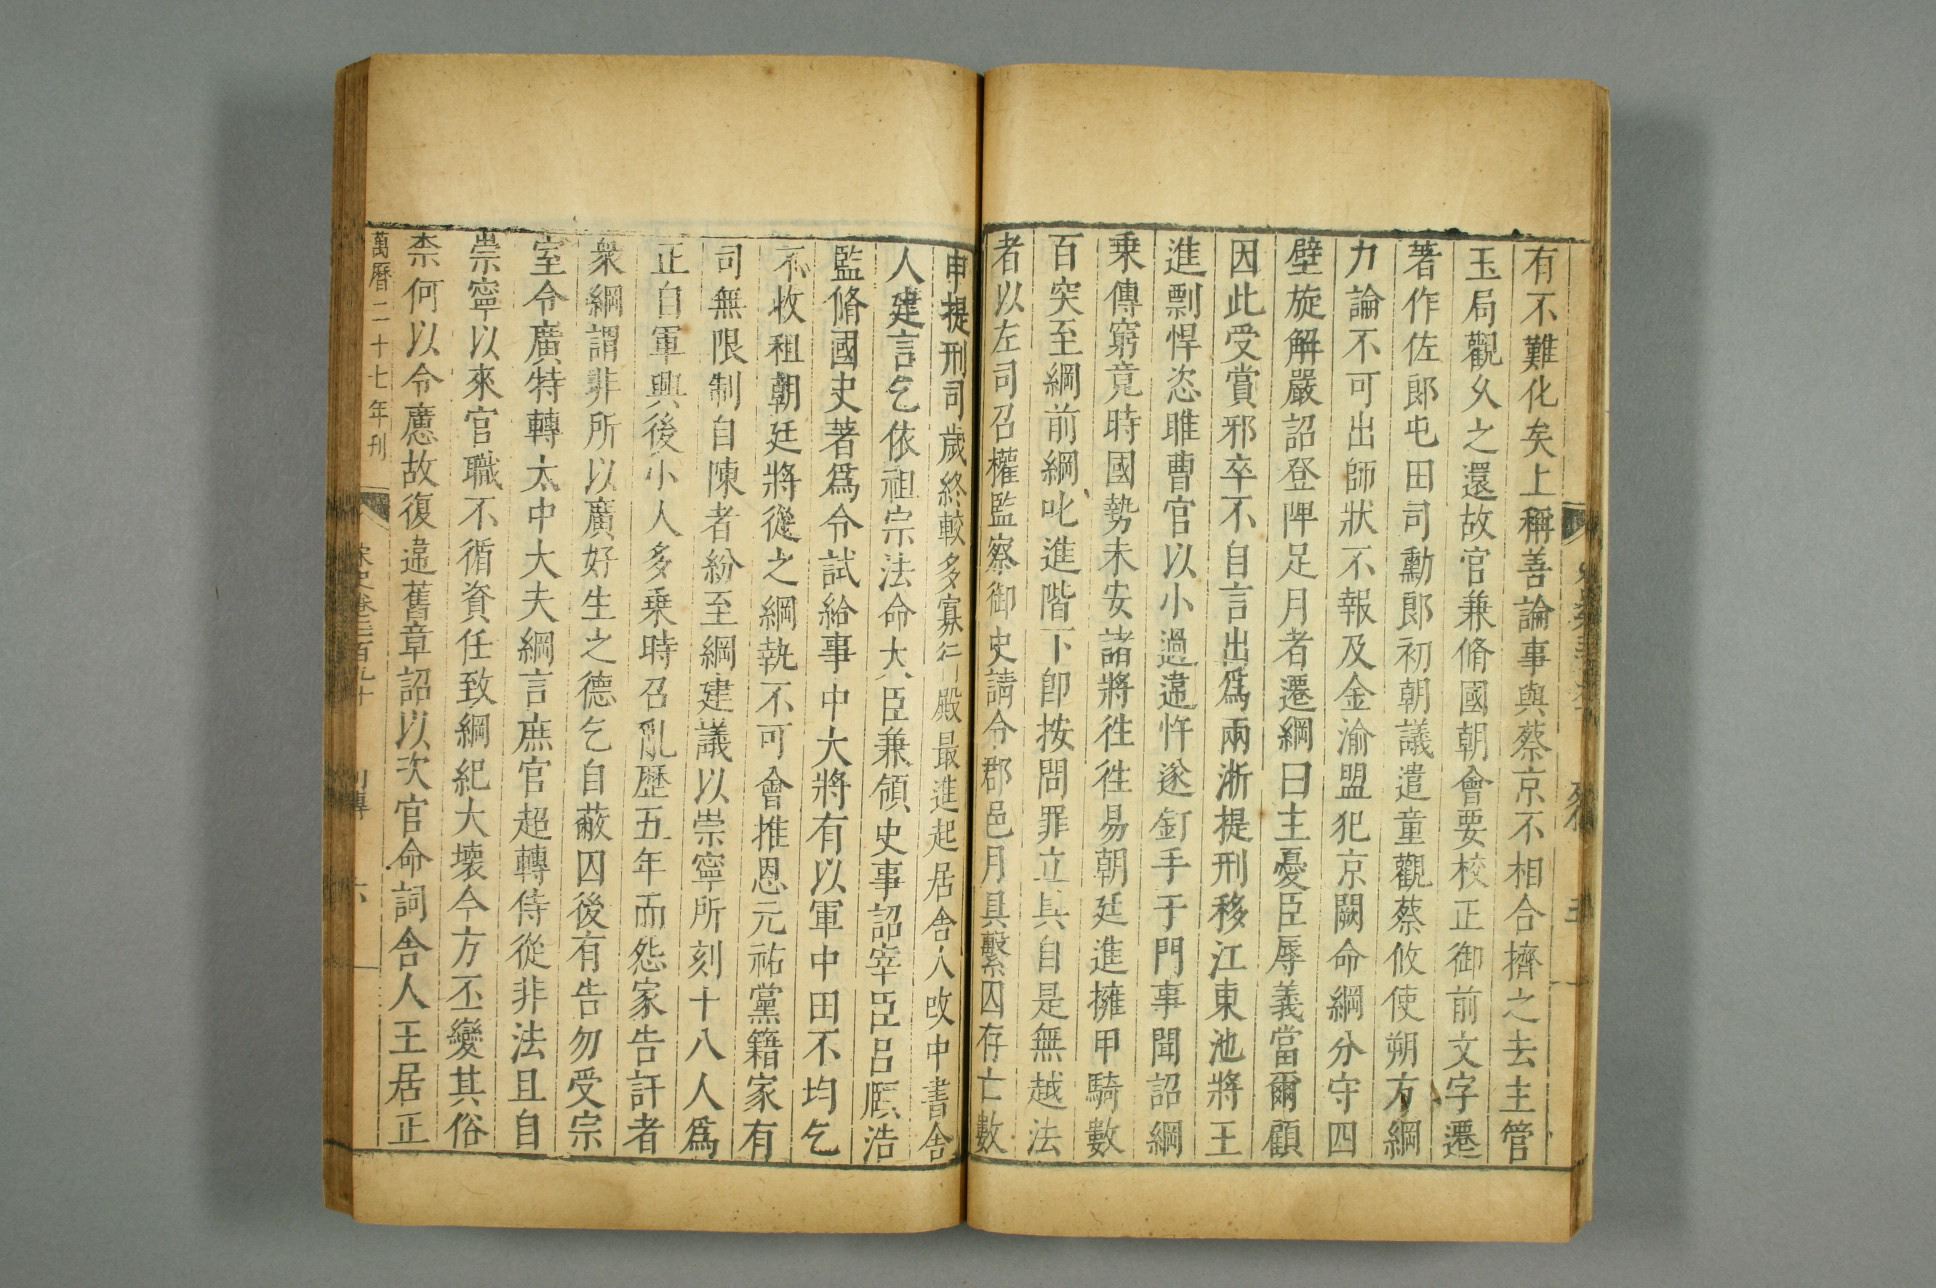 有不難化矣上稱善論事與蔡京不相合擠之去主管
玉局觀久之還故官兼脩國朝會要校正御前文字遷
著作佐郎屯田司勳郎初朝議遣童觀蔡攸使朔方綱
力論不可出師狀不報及金渝盟犯京闕命綱分守四
壁旋解嚴詔登陴足月者遷綱曰主憂臣辱義當爾顧
因此受賞邪卒不自言出爲兩浙提刑移江東池將王
進剽悍恣睢曹官以小過違忤遂釘手于門事聞詔綱
乗傳窮竟時國勢未安諸將徃徃易朝廷進擁甲騎數
百突至綱前綱叱進階下卽按問罪立具自是無越法
者以左司召權監察御史請令郡邑月具繫囚存亡數
申提刑司歲終較多寡行殿最進起居舎人攺中書舎
人建言乞依祖宗法命大臣兼領史事詔宰臣呂頥浩
監脩國史著爲令試給事中大將有以軍中田不均乞
不收租朝廷將從之綱執不可會推恩元祐黨籍家有
司無限制自陳者紛至綱建議以崇寧所刻十八人爲
正自軍興後小人多乗時召亂歷五年而怨家告訐者
衆綱謂非所以廣好生之德乞自蔽囚後有告勿受宗
室令廣特轉太中大夫綱言庶官超轉侍從非法且自
崇寧以來官職不循資任致綱紀大壞今方丕變其俗
柰何以令應故復違舊章詔以次官命詞舎人王居正
萬曆二十七年刊
宋史卷三百九十
列傳
六